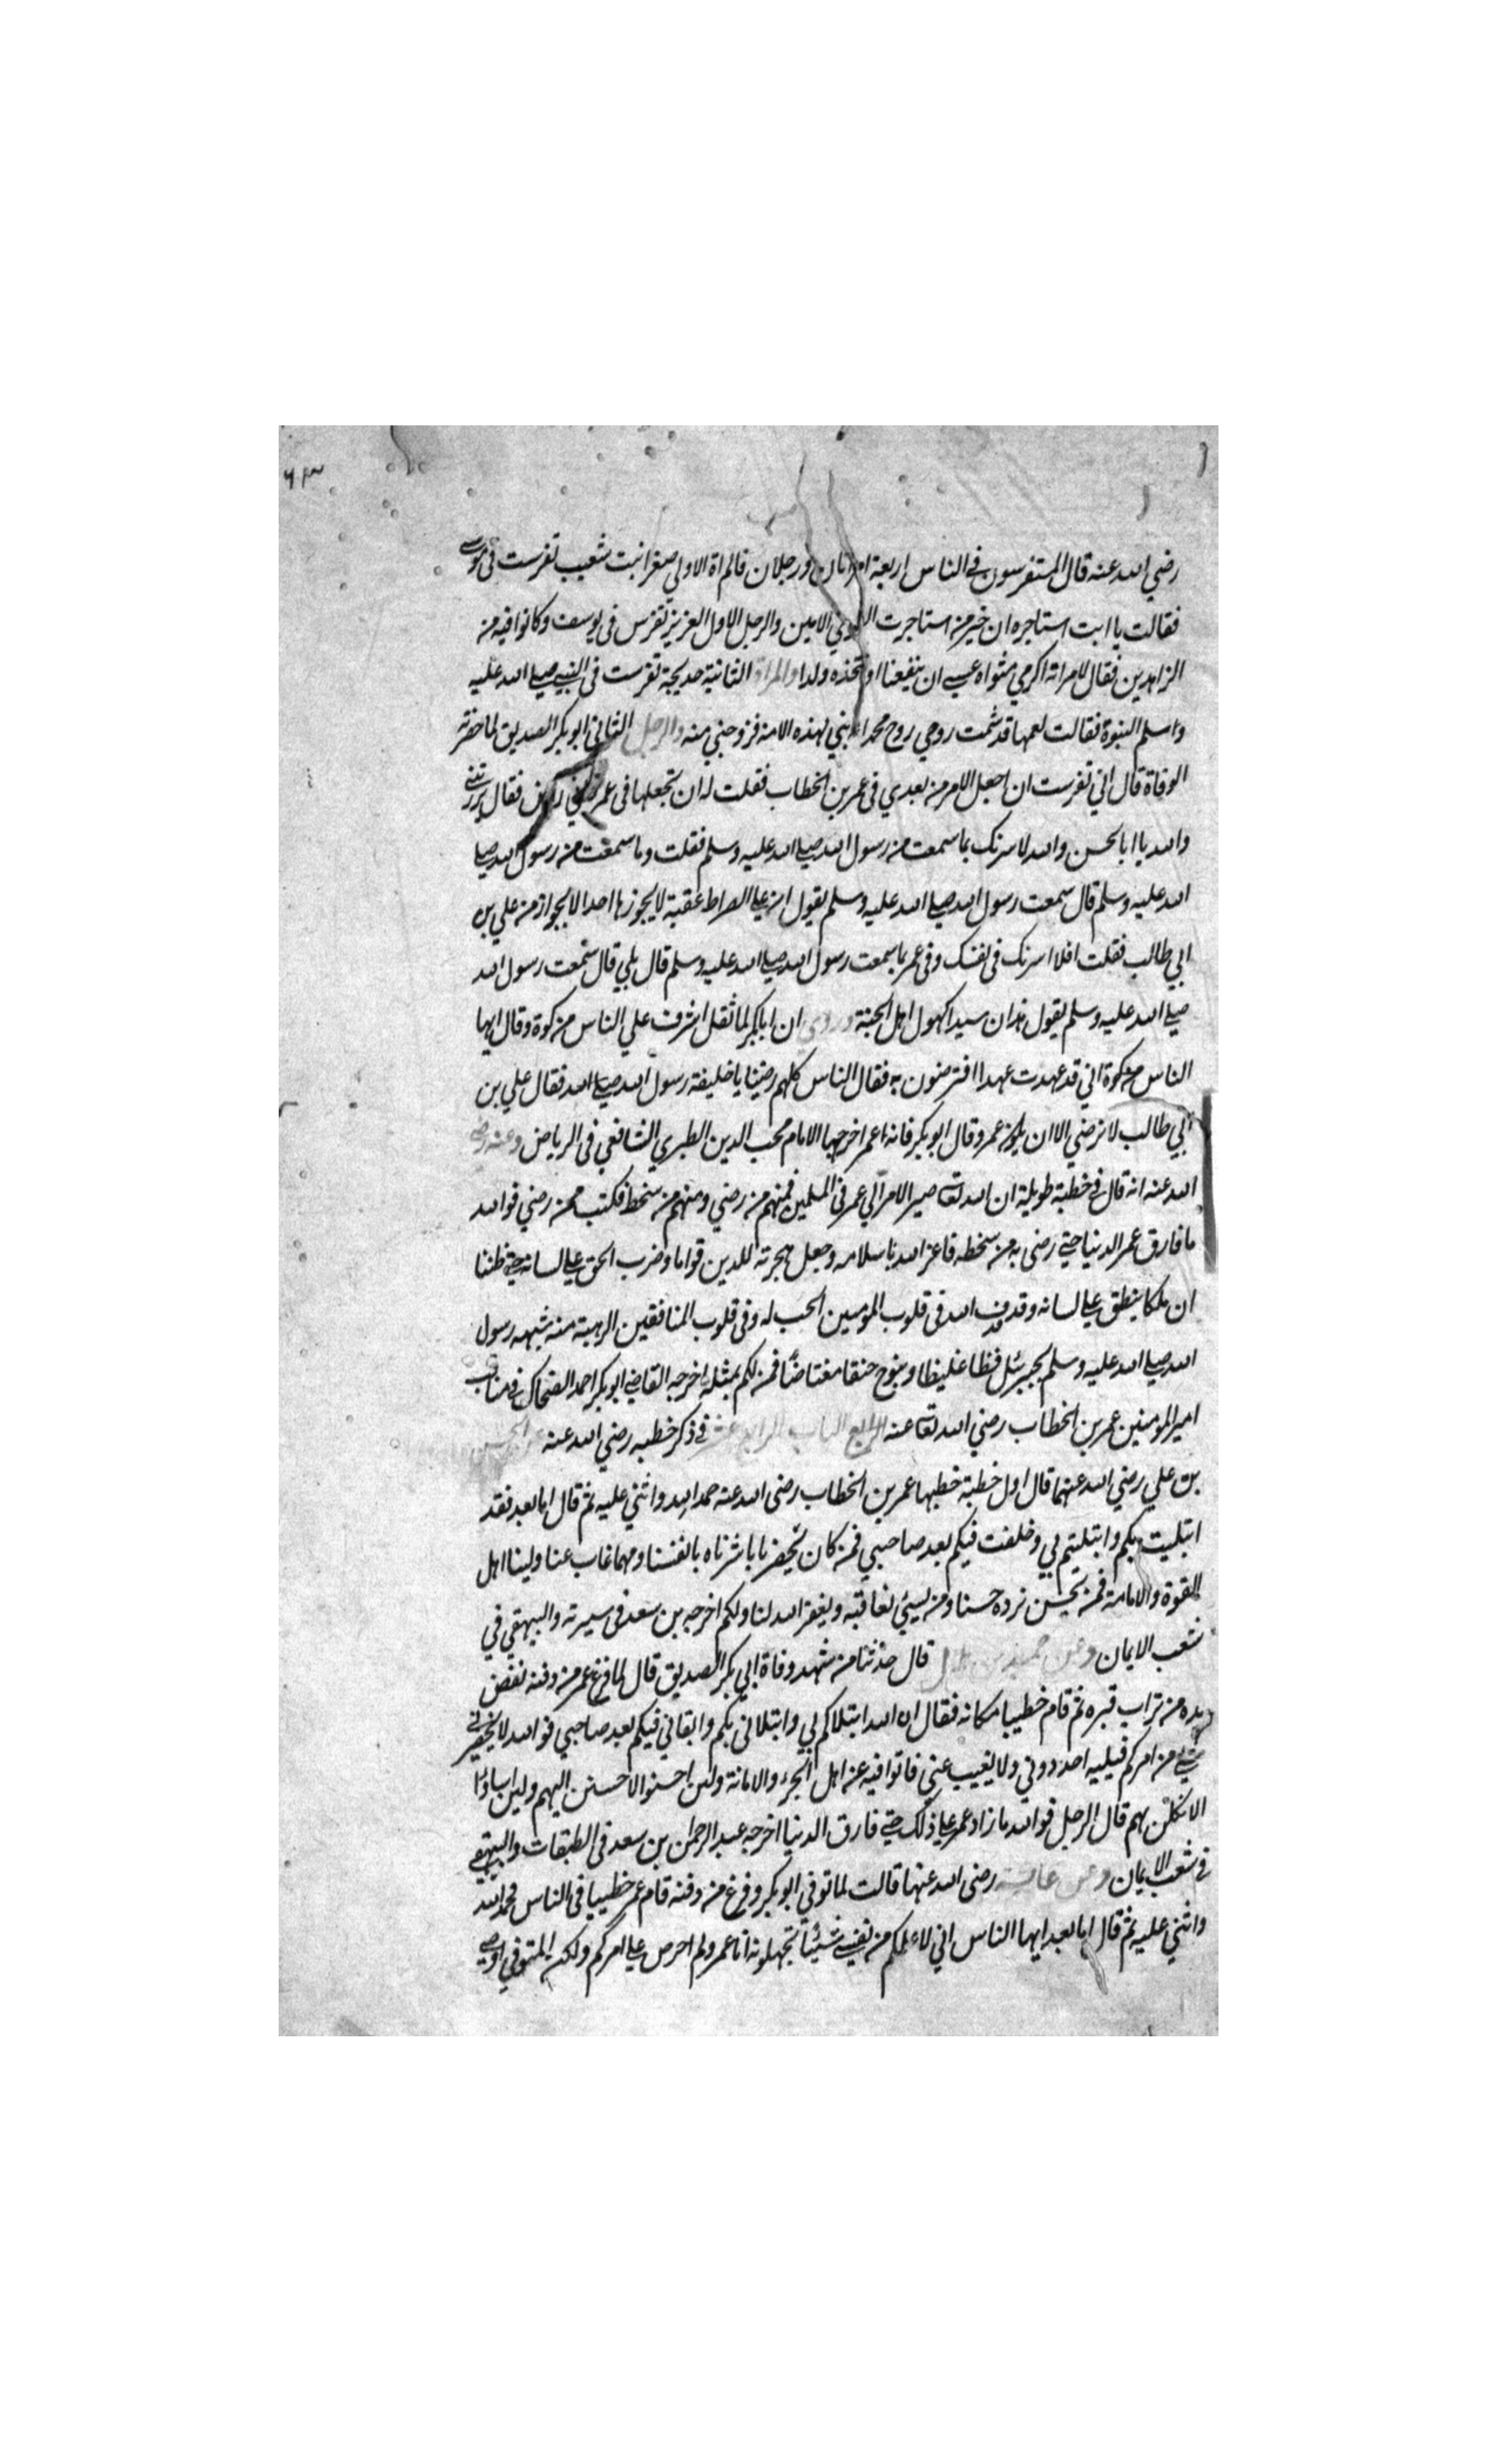 ٦٣
رضي الله عنه قال المتفرسون في الناس اربعة امراتان ورجلان فالمراة الاولي صفرا بنت شعيب تفرست في موسى
فقالت يا ابت استاجره ان خير من استاجرت القوي الامين والرجل الاول العزيز تفرس في يوسف وكانوا فيه من
الزاهدين فقال لامراته اكرمي مثواه عسى ان ينفعنا او نتخذه ولدا والمراة الثانية خديجة تفرست في النبي صلى الله عليه
واسلم النبوة فقالت لعمها قد شمت روحي روح محمد نبي لهذه الامة فزوجني منه والرجل الثاني ابو بكر الصديق لما حضرته
الوفاة قال اني تفرست ان اجعل الامر من بعدي في عمر بن الخطاب فقلت له ان تجعلها في عمر فقال سررتني
والله يا ابا الحسن والله لاسرنك بما سمعت من رسول الله صلى الله عليه وسلم فقلت وما سمعت من رسول الله صلى
الله عليه وسلم قال سمعت رسول الله صلى الله عليه وسلم يقول ان على الصراط عقبة لا يجوزها احد الا بجواز من علي بن
ابي طالب فقلت افلا اسرنك في نفسك وفي عمر بما سمعت رسول الله صلى الله عليه وسلم قال بلي قال سمعت رسول الله
صلى الله عليه وسلم يقول هذان سيدا كهول اهل الجنة وروي ان ابا بكر لما ثقل اشرف علي الناس من كوة وقال ايها
الناس من كوة اني قد عهدت عهدا افترضون به فقال الناس كلهم رضينا يا خليفة رسول الله صلى الله فقال علي بن
ابي طالب لا نرضي الا ان يكون عمر وقال ابو بكر فانه اعمر اخرجها الامام محب الدين الطبري الشافعي في الرياض وعنه رضي
الله عنه انه قال في خطبة طويلة ان الله تعا صير الامر الي عمر في المسلمين فمنهم من رضي ومنهم من سخط فكنت ممن رضي فوالله
ما فارق عمر الدنيا حتى رضي به من سخطه فاعز الله باسلامه وجعل هجرته للدين قواما وضرب الحق على لسانه حتى ظننا
ان ملكا ينطق على لسانه وقذف الله في قلوب المؤمنين الحب له وفي قلوب المنافقين الرهبة منه شبهه رسول
الله صلى الله عليه وسلم بجبرئيل فظا غليظا وبنوح حنقا مغتاضا فمن لكم بمثله اخرجه القاضي ابو بكر احمد الضحاك في مناقب
امير المومنين عمر بن الخطاب رضي الله تعا عنه الباب الرابع عشر في ذكر خطبه رضي الله عنه عن الحسن
بن علي رضي الله عنهما قال اول خطبة خطبها عمر بن الخطاب رضي الله عنه حمد الله واثني عليه ثم قال اما بعد فقد
ابتليت بكم وابتليتم بي وخلفت فيكم بعد صاحبي فمن كان بحضرنا باشرناه بانفسنا ومهما غاب عنا ولينا اهل
القوة والامانة فمن يحسن نزده حسنا ومن يسيئ نعاقبه ويغفر الله لنا ولكم اخرجه بن سعد في سيرته والبيهقي في
شعب الايمان وعن حميد بن هلال قال حدثنا من شهد وفاة ابي بكر الصديق قال لما فرغ عمر من دفنه نفض
يده من تراب قبره ثم قام خطيبا مكانه فقال ان الله ابتلاكم بي وابتلاني بكم وابقاني فيكم بعد صاحبي فوالله لا يحضرني
شئ من امركم فيليه احد دوني ولا يغيب عني فاتوا فيه عن اهل الجزء والامانة ولئن احسنوا لاحسنن اليهم ولئن اساؤا
لانكلن بهم قال الرجل فوالله ما زاد عمر على ذلك حتى فارق الدنيا اخرجه عبد الرحمن بن سعد في الطبقات والبيهقي
في شعب الايمان وعن عايشة رضي الله عنها قالت لما توفي ابو بكر وفرغ من دفنه قام عمر خطيبا في الناس فحمد الله
واثني عليه ثم قال اما بعد ايها الناس اني لا علمكم من نفسي شيئا تجهلونه انا عمر ولم احرص على امركم ولكن المتوفي اوصى